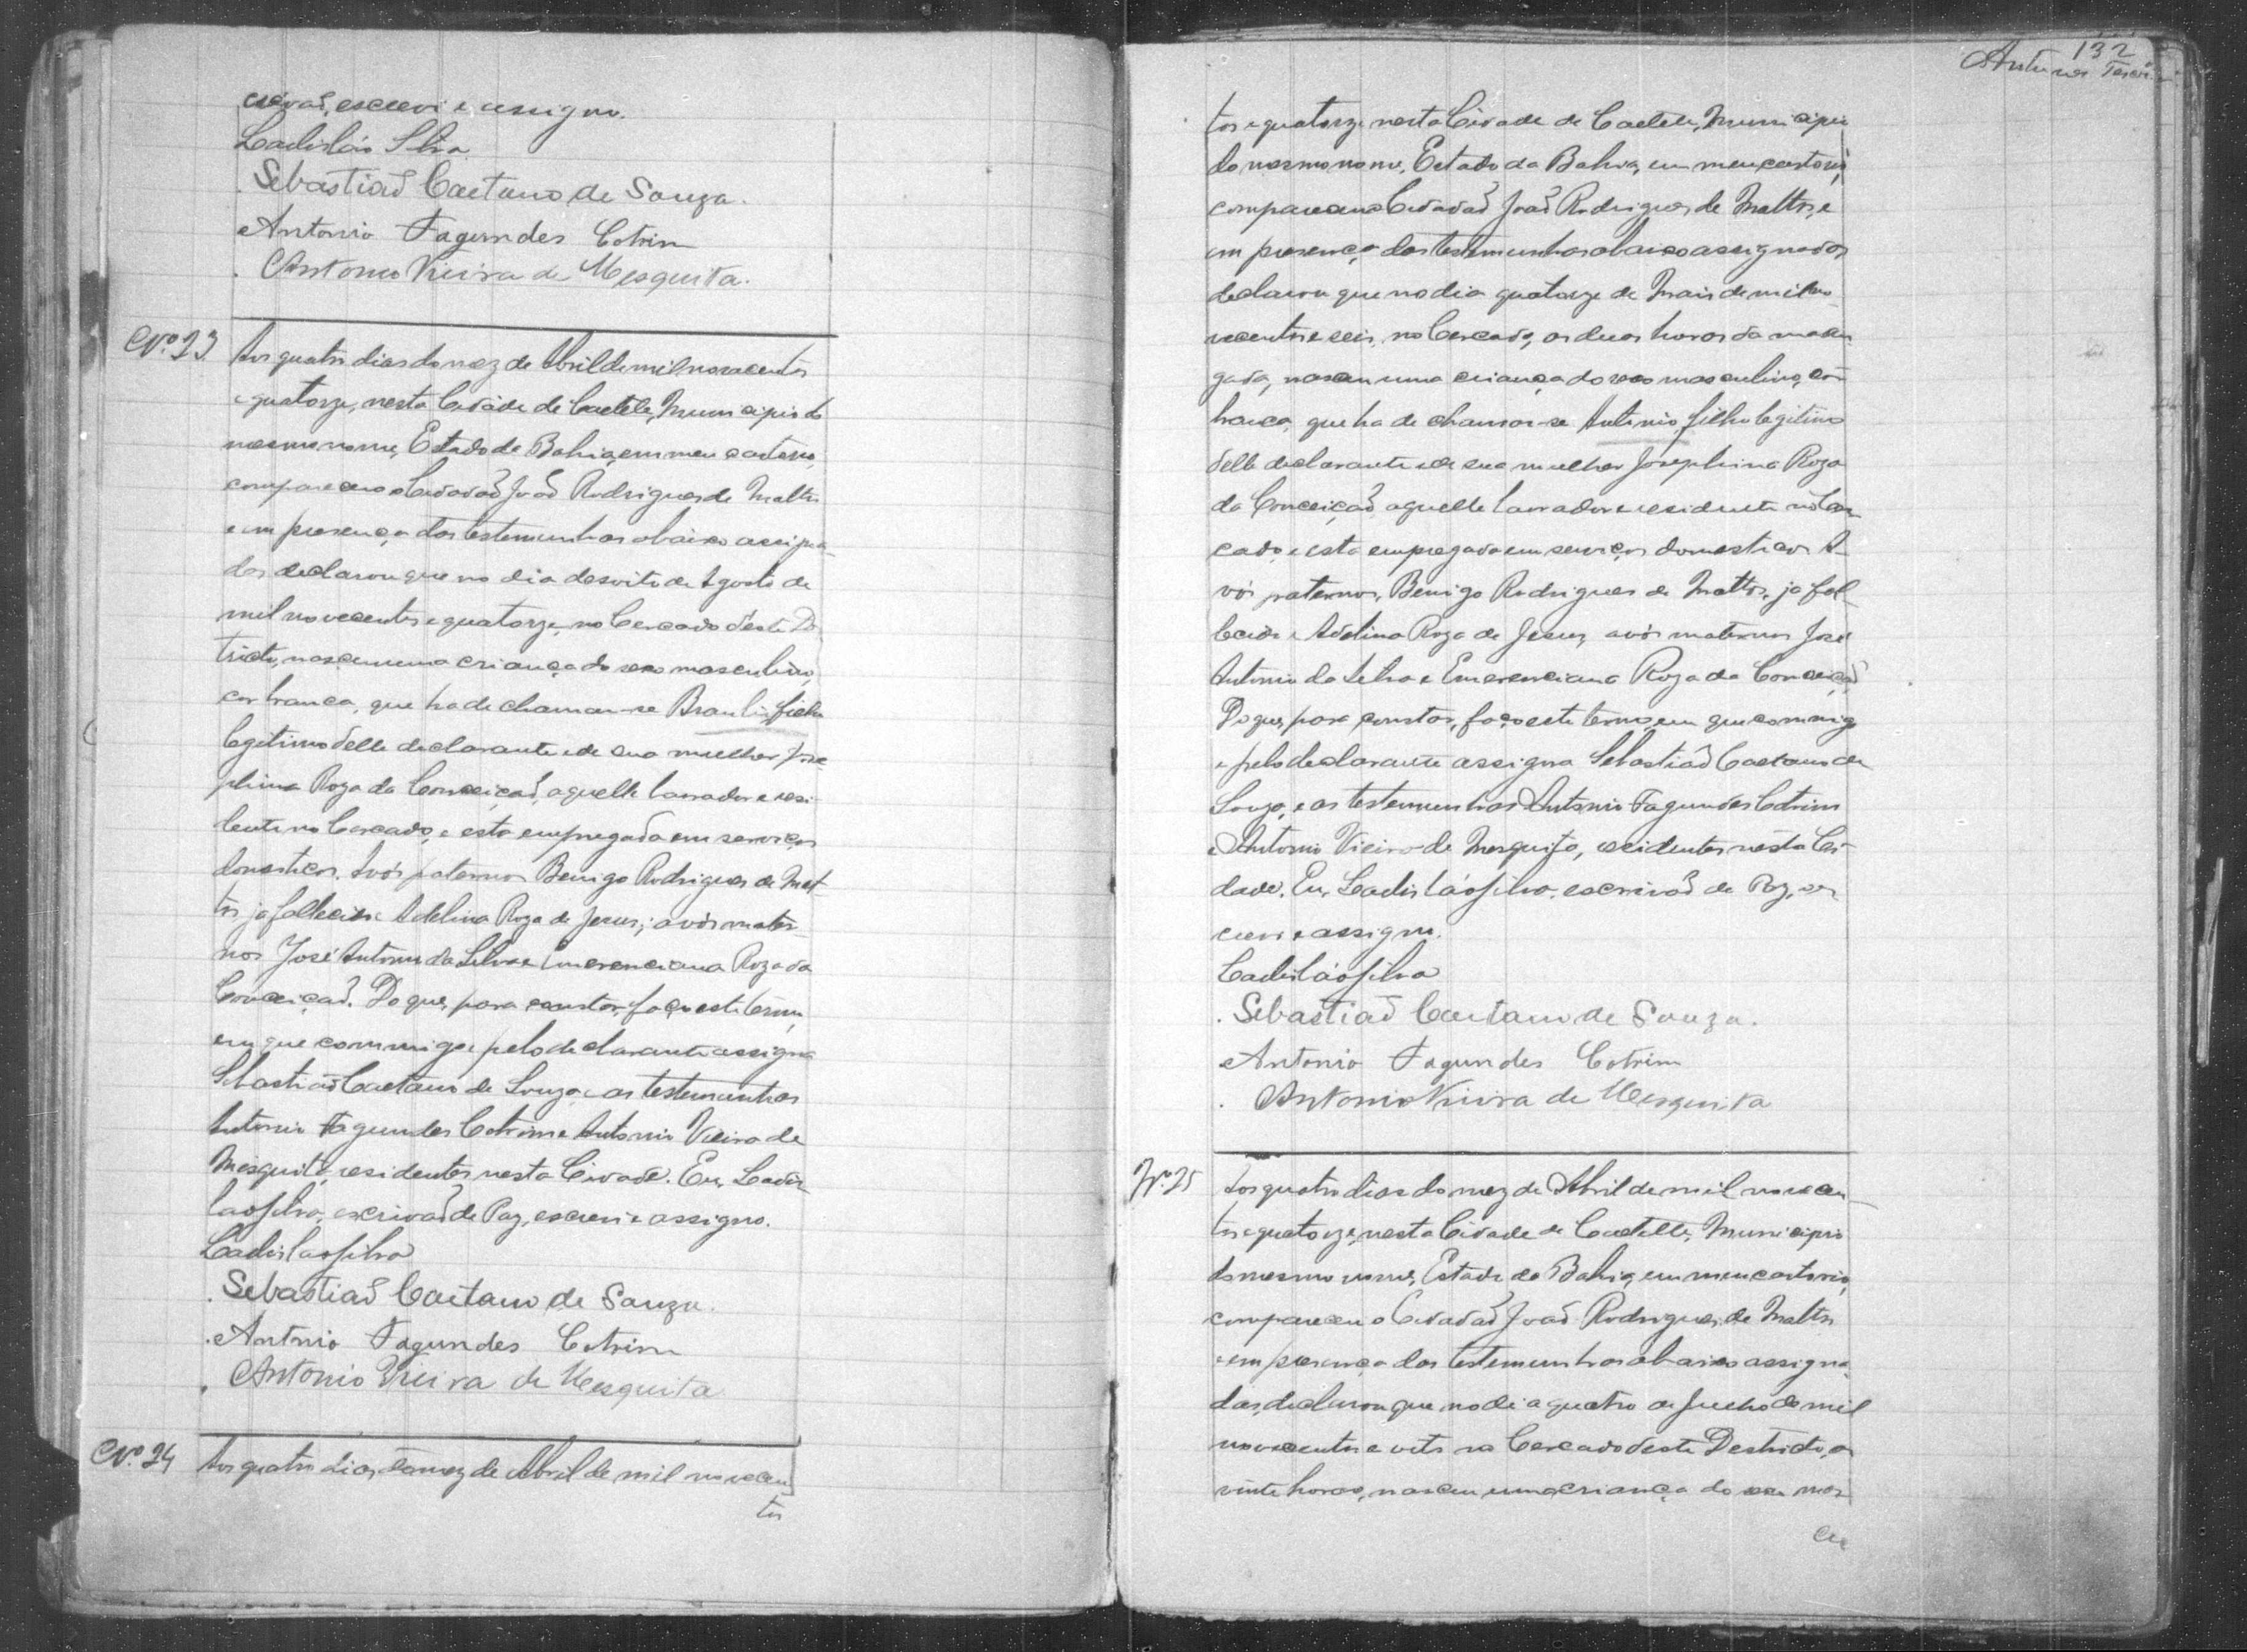 crivaõ, escrevi e assigno.
Ladisláo Silva
Sebastiaõ Caetano de Souza.
Antonio Fagundes Cotrim
Antonio Vieira de Mesquita.
Nº 23 Aos quatro dias do mez de Abril de mil novecentos
e quatorze, nesta Cidade de Caeteté, Municipio do
mesmo nome, Estado da Bahia, em meu cartorio,
compareceu o Cidadaõ Joaõ Rodrigues de Mattos
e em presença das testemunhas abaixo assigna-
das declarou que no dia desoito de Agosto de
mil novecentos e quatorze, no Cercado d'este Dis
tricto, nasceu uma criança do sexo masculino,
cor branca, que ha de chamar-se Braulio, filho
legitimo delle declarante e de sua mulher Jose-
phina Roza da Conceiçaõ, aquelle lavrador e resi-
dente no Cercado, e esta empregada em serviços
domesticos. Avós paternos Benigo Rodrigues de Mat-
tos, ja fallecido e Adelina Roza de Jesus; avós mater-
nos José Antonio da Silva e Emerenciana Roza da
Conceiçaõ. Do que, para constar, faço este termo,
em que commigo e pelo declarante assigna
Sebastiaõ Caetano de Souza e as testemunhas
Antonio Fagundes Cotrim e Antonio Vieira de
Mesquita, residentes nesta Cidade. Eu, Ladis-
lao Silva, escrivaõ de Paz, escrevi e assigno.
Ladislao Silva
Sebastiaõ Caetano de Souza.
Antonio Fagundes Cotrim
Antonio Vieira de Mesquita
Nº 24 Aos quatro dias do mez de Abril de mil novecen
tos
132
Antunes
tos e quatorze nesta Cidade de Caeteté, Municipio
do mesmo nome, Estado da Bahia, em meu cartorio,
compareceu o Cidadaõ Joaõ Rodrigues de Mattos, e
em presença das testemunhas abaixo assignadas
declarou que no dia quatorze de Maio de mil no-
vecentos e seis, no Cercado, as duas horas da madru
gada, nasceu uma criança do sexo masculino, cor
branca, que ha de chamar-se Antonio, filho legitimo
delle declarante e de sua mulher Josephina Roza
da Conceiçaõ, aquelle lavrador e residente no Cer-
cado, e esta empregada em serviços domesticos. A-
vós paternos, Benigo Rodrigues de Mattos, ja fal-
lecido e Adelina Roza de Jesus, avós maternos José
Antonio da Silva e Emerenciana Roza da Conceiçaõ
Do que, para constar, faço este termo, em que commigo
e pelo declarante assigna Sebastiaõ Caetano de
Souza, e as testemunhas Antonio Fagundes Cotrim
e Antonio Vieira de Mesquita, residentes nesta Ci-
dade. Eu, Ladisláo Silva, escrivaõ de Paz, es
crevi e assigno.
Ladisláo Silva
Sebastiaõ Caetano de Souza.
Antonio Fagundes Cotrim
Antonio Vieira de Mesquita
Nº 25 Aos quatro dias do mez de Abril de mil novecen-
tos e quatorze, nesta Cidade de Caeteté, Municipio
do mesmo nome, Estado da Bahia, em meu cartorio,
compareceu o Cidadaõ Joaõ Rodrigues de Mattos
e em presença das testemunhas abaixo assigna-
das, declarou que no dia quatro de Junho de mil
novecentos e oito no Cercado deste Destricto, as
vinte horas, nasceu uma criança do sexo mas
cu